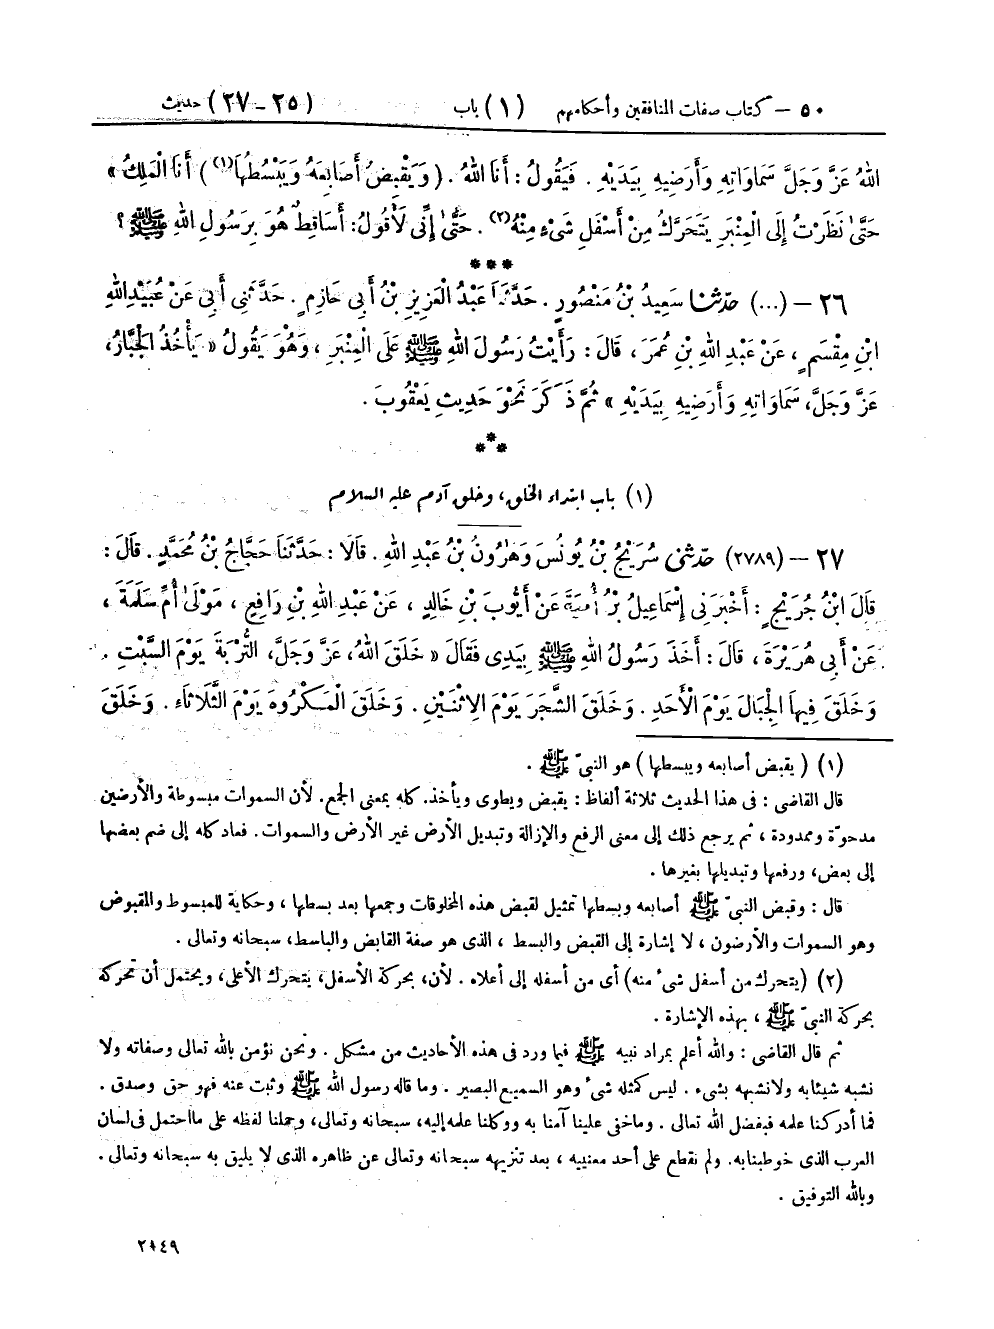 ٥٠ – كتاب صفات المنافقين وأحكامهم (١) باب (٢٥ – ٢٧) حديث
اللهُ عَزَّ وَجَلَّ سَمَاوَاتِهِ وَأَرَضِيهِ بِيَدَيْهِ . فَيَقُولُ : أَنَا اللهُ . ( وَيَقْبِضُ أَصَابِعَهُ وَيَبْسُطُهَا(١) ) أَنَا الْمَلِكُ »
حَتَّىٰ نَظَرْتُ إِلَى الْمِنْبَرِ يَتَحَرَّكُ مِنْ أَسْفَلِ شَىْءٍ مِنْهُ(٢) . حَتَّىٰ إِنِّى لَأَقُولُ : أَسَاقِطٌ هُوَ بِرَسُولِ اللهِ ﷺ ؟
***
٢٦ – (...) حدّثنا سَعِيدُ بْنُ مَنْصُورٍ . حَدَّثَنَا عَبْدُ الْعَزِيزِ بْنُ أَبِى حَازِمٍ . حَدَّثَنِى أَبِى عَنْ عُبَيْدِ اللهِ
ابْنِ مِقْسَمٍ ، عَنْ عَبْدِ اللهِ بْنِ عُمَرَ ، قَالَ : رَأَيْتُ رَسُولَ اللهِ ﷺ عَلَى الْمِنْبَرِ ، وَهُوَ يَقُولُ « يَأْخُذُ الْجَبَّارُ ،
عَزَّ وَجَلَّ ، سَمَاوَاتِهِ وَأَرَضِيهِ بِيَدَيْهِ » ثُمَّ ذَكَرَ نَحْوَ حَدِيثِ يَعْقُوبَ .
***
(١) باب ابتداء الخلق ، وخلق آدم عليه السلام
٢٧ – (٢٧٨٩) حدّثنى سُرَيْجُ بْنُ يُونُسَ وَهَرُونُ بْنُ عَبْدِ اللهِ . قَالَا : حَدَّثَنَا حَجَّاجُ بْنُ مُحَمَّدٍ . قَالَ :
قَالَ ابْنُ جُرَيْجٍ : أَخْبَرَنِى إِسْمَاعِيلُ بْنُ أُمَيَّةَ عَنْ أَيُّوبَ بْنِ خَالِدٍ ، عَنْ عَبْدِ اللهِ بْنِ رَافِعٍ ، مَوْلَىٰ أُمِّ سَلَمَةَ ،
عَنْ أَبِى هُرَيْرَةَ ، قَالَ : أَخَذَ رَسُولُ اللهِ ﷺ بِيَدِى فَقَالَ « خَلَقَ اللهُ ، عَزَّ وَجَلَّ ، التُّرْبَةَ يَوْمَ السَّبْتِ .
وَخَلَقَ فِيهَا الْجِبَالَ يَوْمَ الْأَحَدِ . وَخَلَقَ الشَّجَرَ يَوْمَ الِاثْنَيْنِ . وَخَلَقَ الْمَكْرُوهَ يَوْمَ الثَّلَاثَاءِ . وَخَلَقَ
(١) ( يقبض أصابعه ويبسطها ) هو النبىّ ﷺ .
قال القاضى : فى هذا الحديث ثلاثة ألفاظ : يقبض ويطوى ويأخذ . كله بمعنى الجمع . لأن السموات مبسوطة والأرضين
مدحوّة وممدودة ، ثم يرجع ذلك إلى معنى الرفع والإزالة وتبديل الأرض غير الأرض والسموات . فعاد كله إلى ضم بعضها
إلى بعض ، ورفعها وتبديلها بغيرها .
قال : وقبض النبىّ ﷺ أصابعه وبسطها تمثيل لقبض هذه المخلوقات وجمعها بعد بسطها ، وحكاية للمبسوط والمقبوض
وهو السموات والأرضون ، لا إشارة إلى القبض والبسط ، الذى هو صفة القابض والباسط ، سبحانه وتعالى .
(٢) ( يتحرك من أسفل شىء منه ) أى من أسفله إلى أعلاه . لأن ، بحركة الأسفل ، يتحرك الأعلى ، ويحتمل أن تحركه
بحركة النبىّ ﷺ ، بهذه الإشارة .
ثم قال القاضى : والله أعلم بمراد نبيه ﷺ فيما ورد فى هذه الأحاديث من مشكل . ونحن نؤمن بالله تعالى وصفاته ولا
نشبه شيئابه ولانشبهه بشىء . ليس كمثله شىء وهو السميع البصير . وما قاله رسول الله ﷺ وثبت عنه فهو حق وصدق .
فما أدركنا علمه فبفضل الله تعالى . وماخفى علينا آمنا به ووكلنا علمه إليه ، سبحانه وتعالى ، وحملنا لفظه على مااحتمل فى لسان
العرب الذى خوطبنابه . ولم نقطع على أحد معنييه ، بعد تنزيهه سبحانه وتعالى عن ظاهره الذى لا يليق به سبحانه وتعالى .
وبالله التوفيق .
٢١٤٩